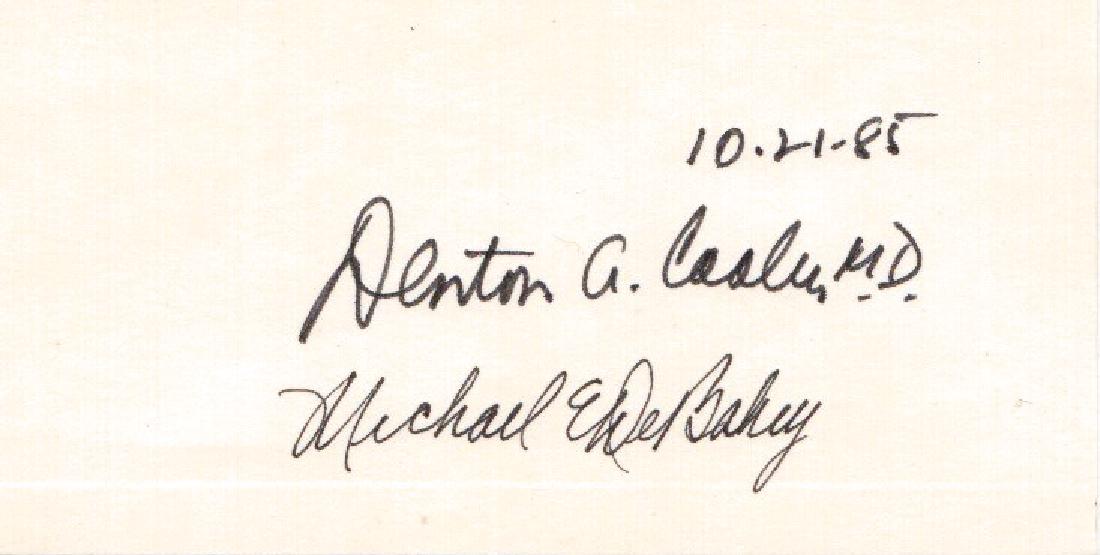 10.21-85
Denton A. Cooley M.D.
Michael E. DeBakey